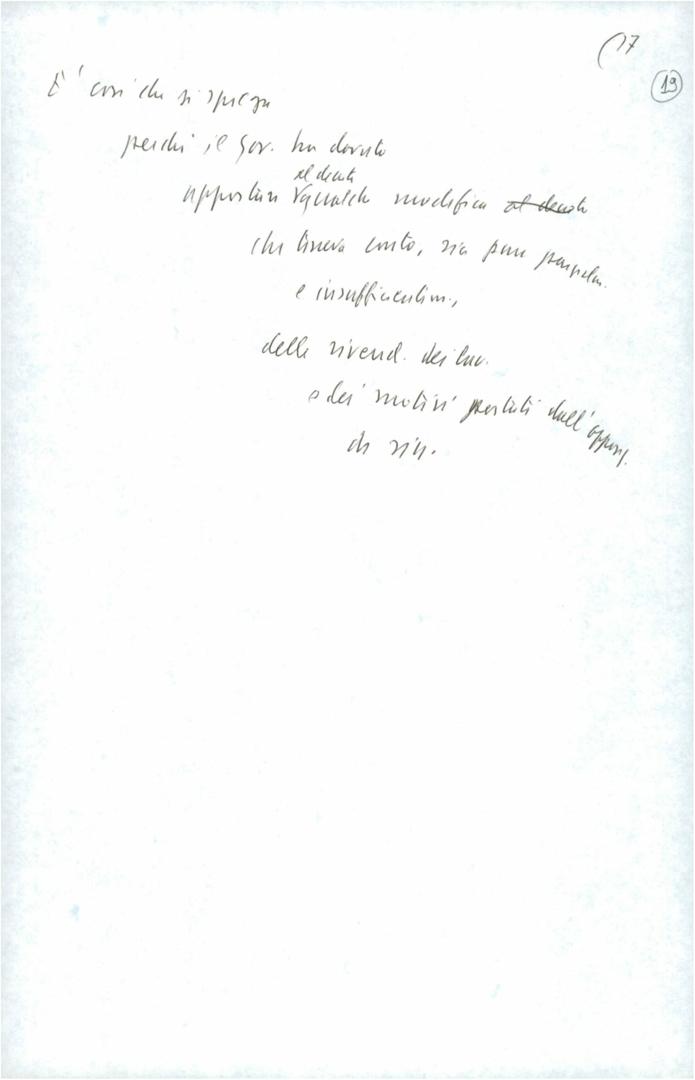 17
19
È così che si spiega
perché il gov. ha dovuto
al decreto
apportare qualche modifica al decreto
che teneva conto, sia pure parzialm.
e insufficientem.,
delle rivend. dei lav.
e dei motivi portati dall'oppos.
di sin.